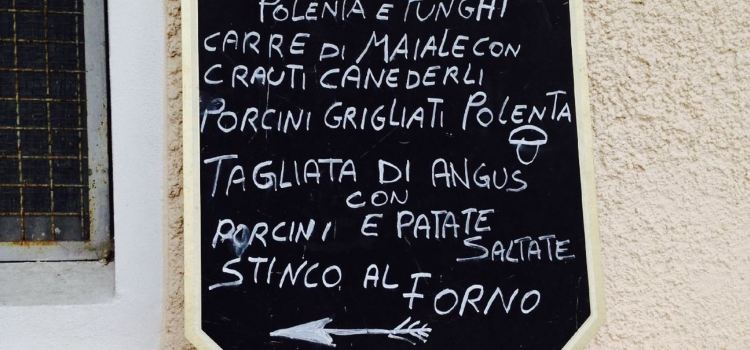 POLENTA E FUNGHI
CARRE DI MAIALE CON
CRAUTI CANEDERLI
PORCINI GRIGLIATI POLENTA
TAGLIATA DI ANGUS
CON
PORCINI E PATATE
SALTATE
STINCO AL FORNO